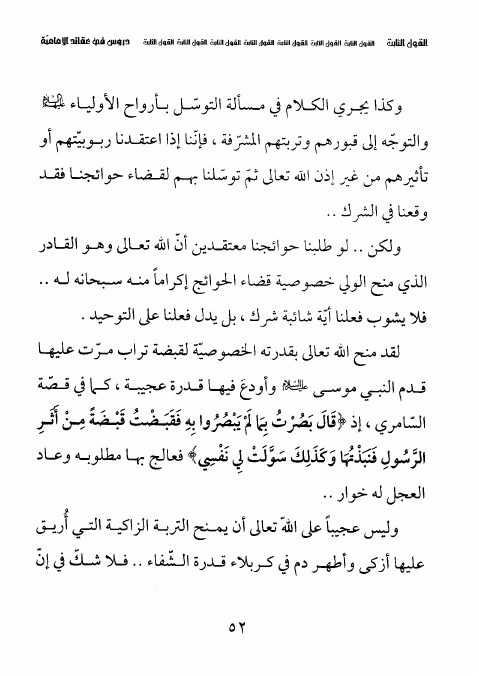 القول الثابت القول الثابت القول الثابت القول الثابت القول الثابت القول الثابت القول الثابت دروس في عقائد الإمامية
وكذا يجري الكلام في مسألة التوسّل بأرواح الأولياء عليهم السلام
والتوجّه إلى قبورهم وتربتهم المشرّفة ، فإنّنا إذا اعتقدنا ربوبيّتهم أو
تأثيرهم من غير إذن الله تعالى ثمّ توسّلنا بهم لقضاء حوائجنا فقد
وقعنا في الشرك ..
ولكن .. لو طلبنا حوائجنا معتقدين أنّ الله تعالى وهو القادر
الذي منح الولي خصوصية قضاء الحوائج إكراماً منه سبحانه له ..
فلا يشوب فعلنا أيّة شائبة شرك ، بل يدل فعلنا على التوحيد .
لقد منح الله تعالى بقدرته الخصوصيّة لقبضة تراب مرّت عليها
قدم النبي موسى عليه السلام وأودعَ فيها قدرة عجيبة ، كما في قصّة
السامري ، إذ ﴿قَالَ بَصُرْتُ بِمَا لَمْ يَبْصُرُوا بِهِ فَقَبَضْتُ قَبْضَةً مِنْ أَثَرِ
الرَّسُولِ فَنَبَذْتُهَا وَكَذَلِكَ سَوَّلَتْ لِي نَفْسِي﴾ فعالج بها مطلوبه وعاد
العجل له خوار ..
وليس عجيباً على اللهّ تعالى أن يمنح التربة الزاكية التي أُريق
عليها أزكى وأطهر دم في كربلاء قدرة الشّفاء .. فلا شكّ في إنّ
٥٢